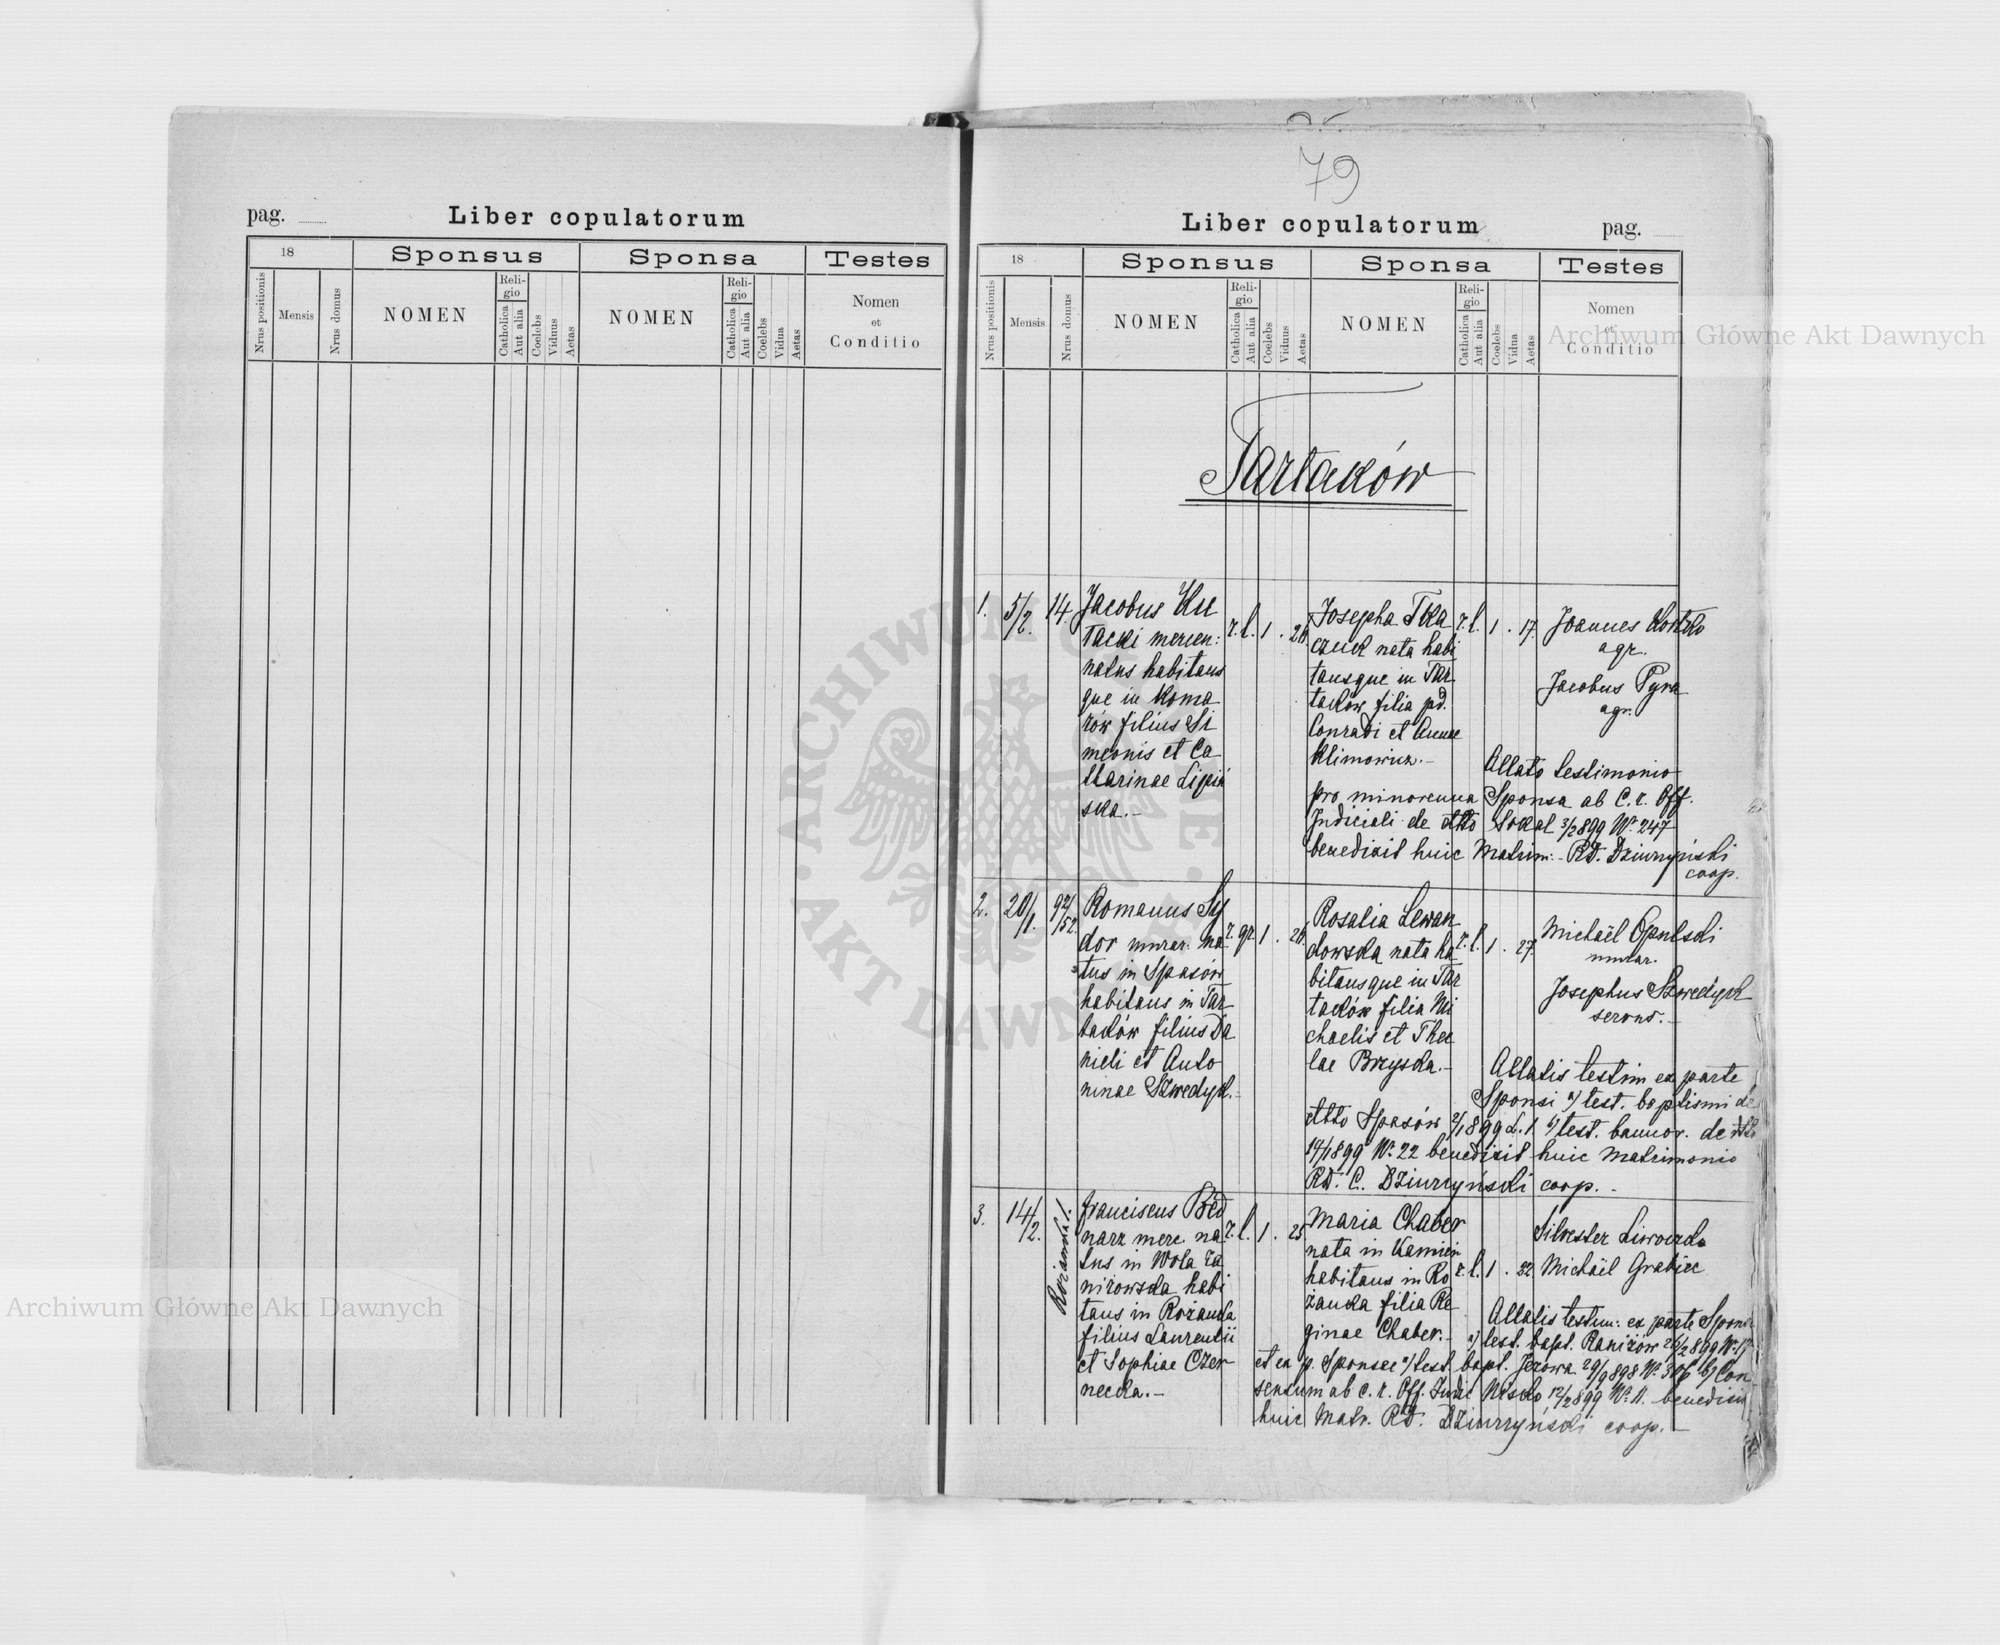 79
pag.
Liber copulatorum
18
Sponsus
Sponsa
Testes
Nrus positionis
Mensis
Nrus domus
NOMEN
Religio
Catholica
Aut alia
Coelebs
Viduus
Aetas
NOMEN
Religio
Catholica
Aut alia
Coelebs
Vidua
Aetas
Nomen
et
Conditio
Liber copulatorum
pag.
18
Sponsus
Sponsa
Testes
Nrus positionis
Mensis
Nrus domus
NOMEN
Religio
Catholica
Aut alia
Coelebs
Viduus
Aetas
NOMEN
Religio
Catholica
Aut alia
Coelebs
Vidua
Aetas
Nomen
et
Conditio
Archiwum Główne Akt Dawnych
Tartaków
1.
5/2.
14.
Jacobus Ku
tacki mercen:
natus habitans
que in Koma
rów filius Si
meonis et Ca
tharinae Lipiń
ska.-
r. l. 1 .
Josepha Tka
czuk nata habi
tansque in Tar
taków filia pd.
Conradi et Annae
Klimowicz.-
r. l. 1 . 17.
Joannes Kostko
agr.
Jacobus Pyra
agr.
Allato testimonio
pro minorenna Sponsa ab C. r. Off.
Judiciali de dtto Sokal 3/2 899 No 247
benedixit huic Matrim:- RD. Dziurzyński
coop.
2.
20/1.
92/152.
Romanus Sy
dor murar. na
tus in Spasów
habitans in Tar
taków filius Da
nieli et Anto
ninae Szwedyk.-
r. gr. 1 .
Rosalia Lewan
dowska nata ha
bitansque in Tar
taków filia Mi
chaelis et Thec
lae Bryska.-
r. l. 1 . 27.
Michaël Opulski
murar.
Josephus Szwedyk
servus.-
Allatis testim ex parte
Sponsi a) test. baptismi de
dtto Spasów 2/1 899 L. 1. b) test. bannor. de dtto
14/1 899 No 22 benedixit huic Matrimonio
RD. C. Dziurzyński coop.-
3.
14/2.
Franciscus Bed
narz merc. na
tus in Wola Ra
niżowska habi
tans in Rożanka
filius Laurentii
et Sophiae Czer
necka.-
r. l. 1 . 25
Maria Chaber
nata in Kamień
habitans in Ro
żanka filia Re
ginae Chaber.-
r. l. 1 .
Silvester
Michaël Grabiec
Allatis testim: ex parte Sponsi
a) test. bapt. Raniżów
et ex p. Sponsae a) test. bapt. Jeżowa 29/9 898 No 306 b) Con
sensum ab c. r. Off. Judic Nisko 12/2 899 No 11. benedixit
huic Matr. RD. Dziurzyński coop.-
ARCHIWUM GŁÓWNE AKT DAWNYCH
Archiwum Główne Akt Dawnych